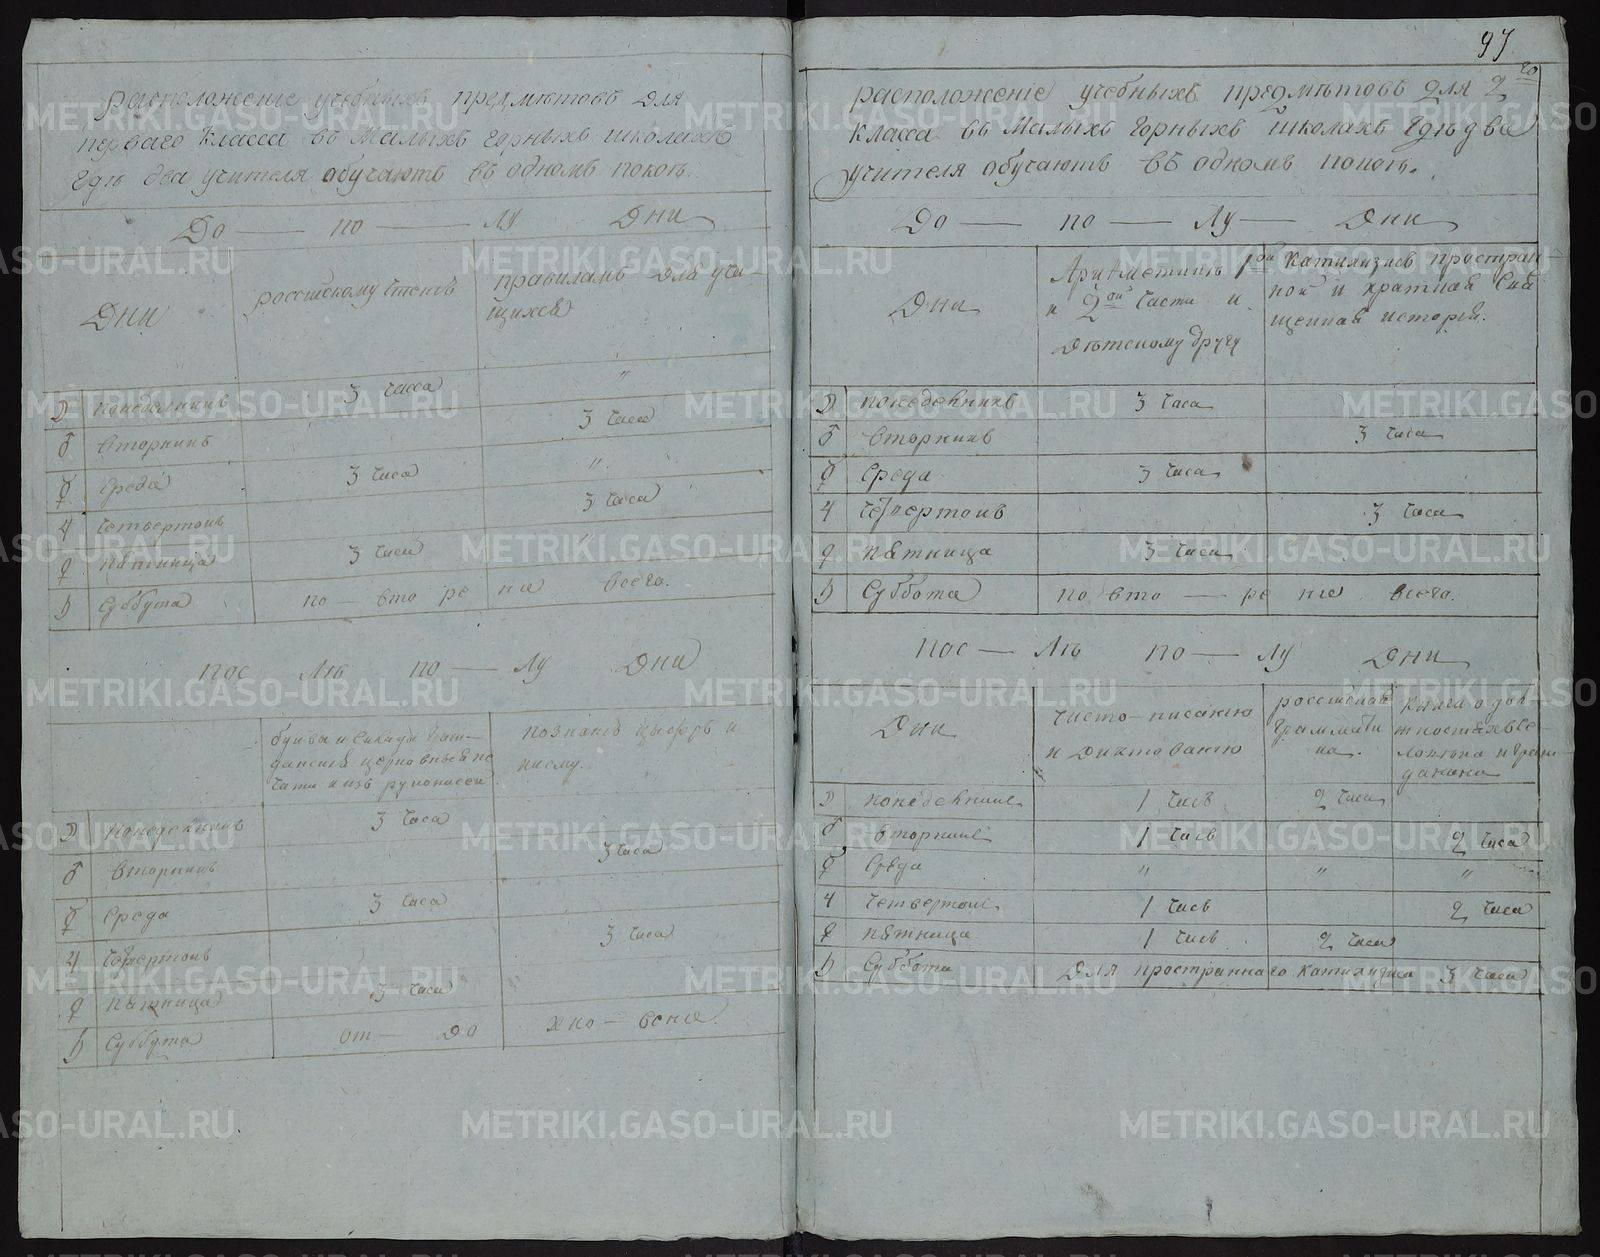 Расположеніе учебныхъ предмѣтовъ для
перваго класса въ малыхъ горныхъ школахъ
гдѣ два учителя обучаютъ въ одномъ покоѣ.
До — по — лу дни
Дни
россійскому чтенію
правиламъ для уча-
щихся
☽ понедельникъ 3 часа "
♂ вторникъ 3 часа
☿ среда 3 часа "
♃ четвертокъ 3 часа
♀ пятница 3 часа "
♄ суббута по — вто ре ніе всего.
Пос лѣ по — лу дни
буквы и склады граж-
данской церковной пе
чати и изъ рукописей
познанію цыфръ и
письму.
☽ понедельникъ 3 часа
♂ вторникъ 3 часа
☿ среда 3 часа
♃ четвертокъ 3 часа
♀ пятница 3 часа
♄ суббута от — до хно — веніе.
97
расположеніе учебныхъ предмѣтовъ для 2го
класса въ малыхъ горныхъ школахъ гдѣ два
учителя обучаютъ въ одномъ покоѣ.
До — по — лу — дни
Дни
Ариѳметикѣ 1ой
и 2ой части и
дѣтскому другу
Катихизисъ простран-
ной и краткая свя
щенная исторія.
☽ понедельникъ 3 часа
♂ вторникъ 3 часа
☿ среда 3 часа
♃ четвертокъ 3 часа
♀ пятница 3 часа
♄ суббота по вто — ре ніе всего.
Пос — лѣ по — лу дни
Дни
чисто-писанію
и диктованію
россійская
граммати
ка.
книга о дол-
жностяхъ че
ловѣка и граж-
данина
☽ понедельникъ 1 часъ 2 часа
♂ вторникъ 1 часъ 2 часа
☿ среда " " "
♃ четвертокъ 1 часъ 2 часа
♀ пятница 1 часъ 2 часа
♄ суббота для пространнаго катихизиса 3 часа
METRIKI.GASO-URAL.RU